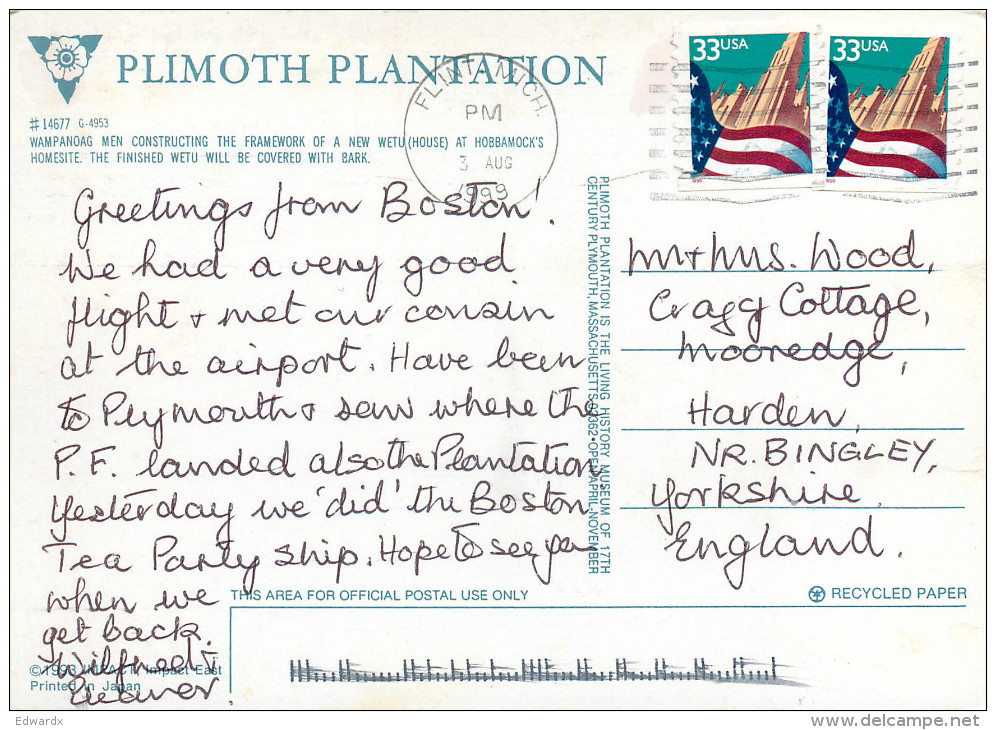 PLIMOTH PLANTATION
#14677 G-4953
WAMPANOAG MEN CONSTRUCTING THE FRAMEWORK OF A NEW WETU (HOUSE) AT HOBBAMOCK'S
HOMESITE. THE FINISHED WETU WILL BE COVERED WITH BARK.
FLINT MICH.
PM
3 AUG
1999
33USA
33USA
1999
1999
Greetings from Boston!
We had a very good
flight + met our cousin
at the airport. Have been
to Plymouth + saw where the
P.F. landed also the Plantation
Yesterday we 'did' the Boston
Tea Party ship. Hope to see you
when we
get back.
Wilfred +
Eleanor.
PLIMOTH PLANTATION IS THE LIVING HISTORY MUSEUM OF 17TH
CENTURY PLYMOUTH, MASSACHUSETTS 02362 • OPEN APRIL-NOVEMBER
Mr + Mrs. Wood,
Cragg Cottage,
Mooredge,
Harden,
NR. BINGLEY,
Yorkshire.
England.
THIS AREA FOR OFFICIAL POSTAL USE ONLY
RECYCLED PAPER
© 1993 IMPACT, Impact East
Printed in Japan
Edwardx
delcampe.net